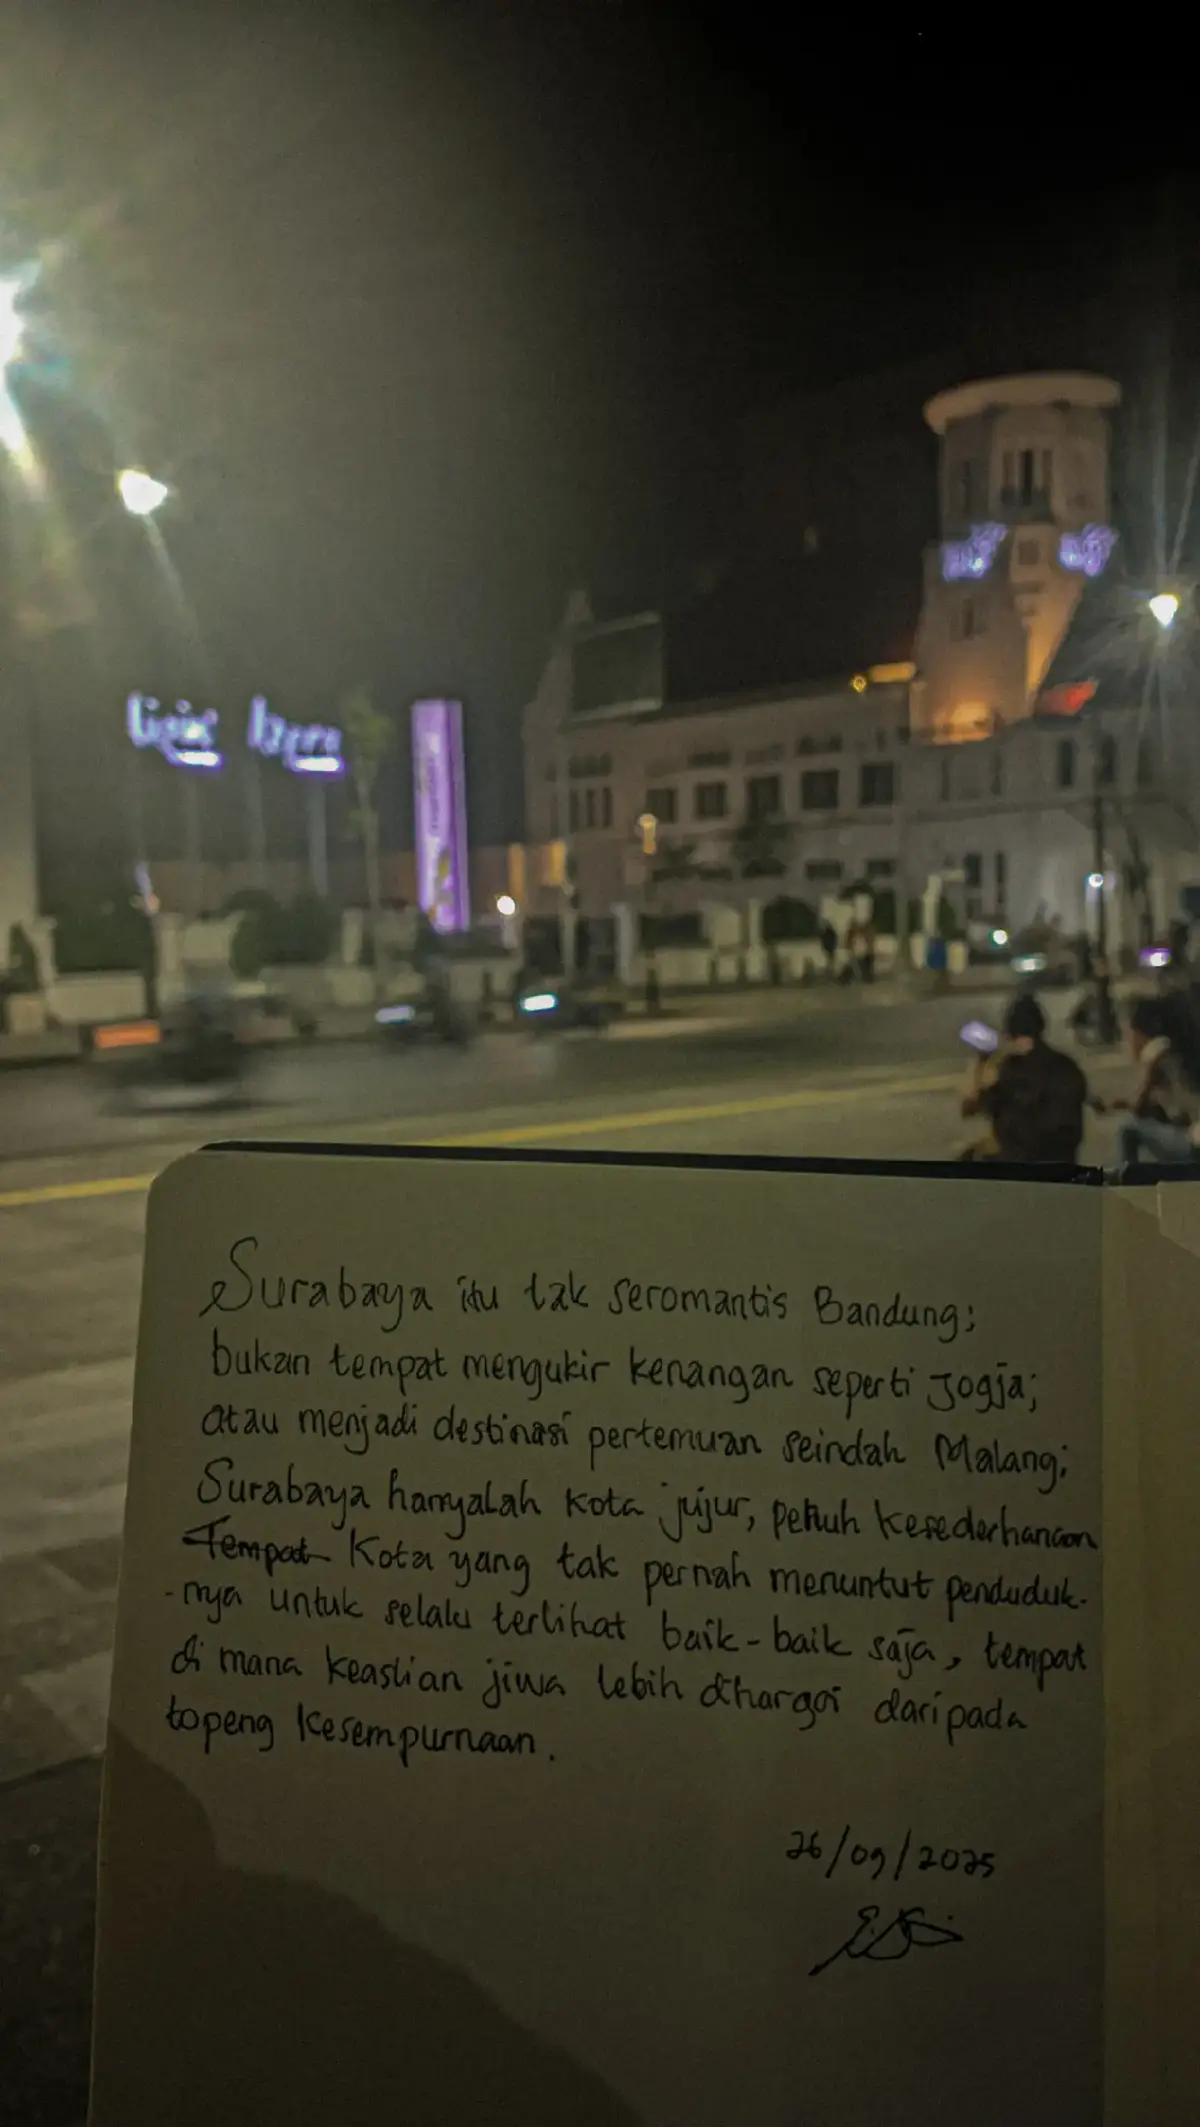 Surabaya itu tak seromantis Bandung;
bukan tempat mengukir kenangan seperti Jogja;
atau menjadi destinasi pertemuan seindah Malang;
Surabaya hanyalah kota jujur, penuh kesederhanaan
Tempat Kota yang tak pernah menuntut penduduk-
-nya untuk selalu terlihat baik-baik saja, tempat
di mana keaslian jiwa lebih dihargai daripada
topeng kesempurnaan.
26/09/2025